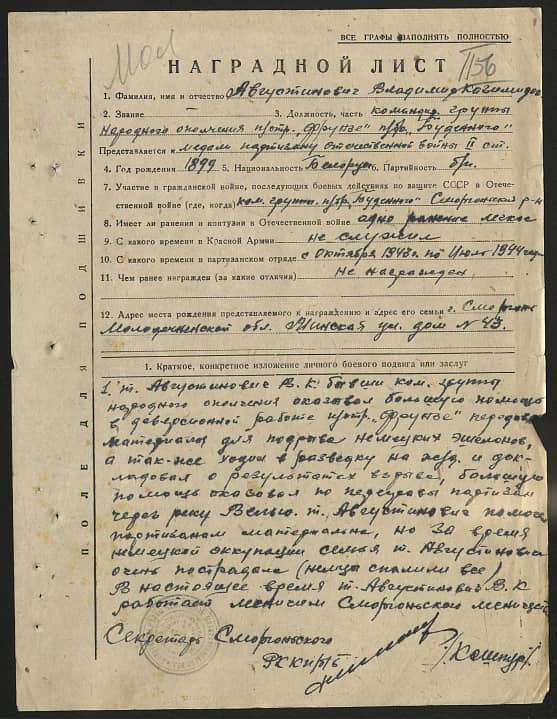 Мол
ВСЕ ГРАФЫ ЗАПОЛНЯТЬ ПОЛНОСТЬЮ
НАГРАДНОЙ ЛИСТ
1. Фамилия, имя и отчество Августинович Владимир
2. Звание 3. Должность, часть командир группы
народного ополчения п/отр. „Фрунзе" п/бр. „Буденного"
Представляется к медали партизану отечественной войны II ст.
4. Год рождения 1899 5. Национальность Белорус 6. Партийность б/п.
7. Участие в гражданской войне, последующих боевых действиях по защите СССР в Отече-
ственной войне (где, когда) ком. группы п/бр „Буденного" Сморгонский р-н
8. Имеет ли ранения и контузии в Отечественной войне одно ранение легкое
9. С какого времени в Красной Армии не служил
10. С какого времени в партизанском отряде с Октября 1943 г. по Июль 1944 года
11. Чем ранее награжден (за какие отличия) Не награжден.
12. Адрес места рождения представляемого к награждению и адрес его семьи г. Сморгонь
Молодечненской обл. Минская ул. дом № 43.
1. Краткое, конкретное изложение личного боевого подвига или заслуг
1. т. Августинович В. К. бывши ком. группы
народного ополчения оказывал большую помощь
в диверсионной работе п/отр. „Фрунзе" передавал
материалы для подрыва немецких эшелонов,
а так-же ходил в разведку на жд. и док-
ладовал о результатах взрыва, большую
помощь оказовал по переправы партизан
через реку Велью. т. Августинович помогал
партизанам материально, но за время
немецкой оккупации семья т. Августинович
очень пострадала (немцы спалили все)
В настоящее время т. Августинович В. К
работает лесничим Сморгоньского лесничест
Секретарь Сморгоньского
РККП/б/Б
ПОЛЕ ДЛЯ ПОДШИВКИ